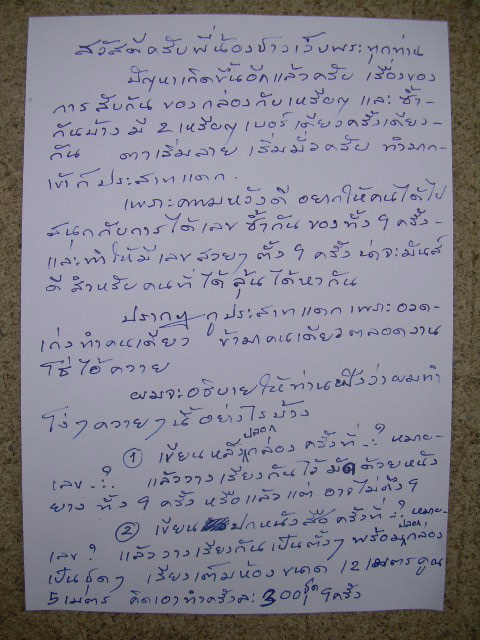 สวัสดีครับพี่น้องชาวเว็บพระทุกท่าน
ปัญหาเกิดขึ้นอีกแล้วครับ เรื่องของ
การสับกันของกล่องกับเหรียญ และซ้ำ-
กันบ้าง มี 2 เหรียญ เบอร์เดียวครั้งเดียว-
กัน ตาเริ่มลาย เริ่มมั่วครับ ทำมาก-
เข้าก็ประสาทแตก.
เพราะความหวังดี อยากให้คนได้ไป
สนุกกับการได้เลขซ้ำกันของทั้ง 9 ครั้ง-
และทำให้มีเลขสวยๆ ตั้ง 9 ครั้ง น่าจะมันส์
ดี สำหรับคนที่ได้ลุ้นได้หากัน
ปรากฏ กูประสาทแดก เพราะอวด-
เก่งทำคนเดียว ข้ามาคนเดียวตลอดงาน
โซ่ไอ้ควาย
ผมจะอธิบายให้ท่านฟังว่าผมทำ
โง่ๆควายๆนี้ อย่างไรบ้าง
① เขียนหลังปลอกกล่อง ครั้งที่ -:? หมาย-
เลข -:? แล้ววางเรียงกันไว้ มัดด้วยหนัง
ยาง ทั้ง 9 ครั้ง หรือแล้วแต่ อาจไม่ถึง 9
② เขียนปกหนังสือ ครั้งที่ -:? หมาย-
เลข ? แล้ววางเรียงกันเป็นตั้งๆ พร้อมปลอกกล่อง
เป็นชุดๆ เรียงเต็มห้องขนาด 12 เมตรคูณ
5 เมตร คิดเอาทำครั้งละ 300 ชุด 9 ครั้ง